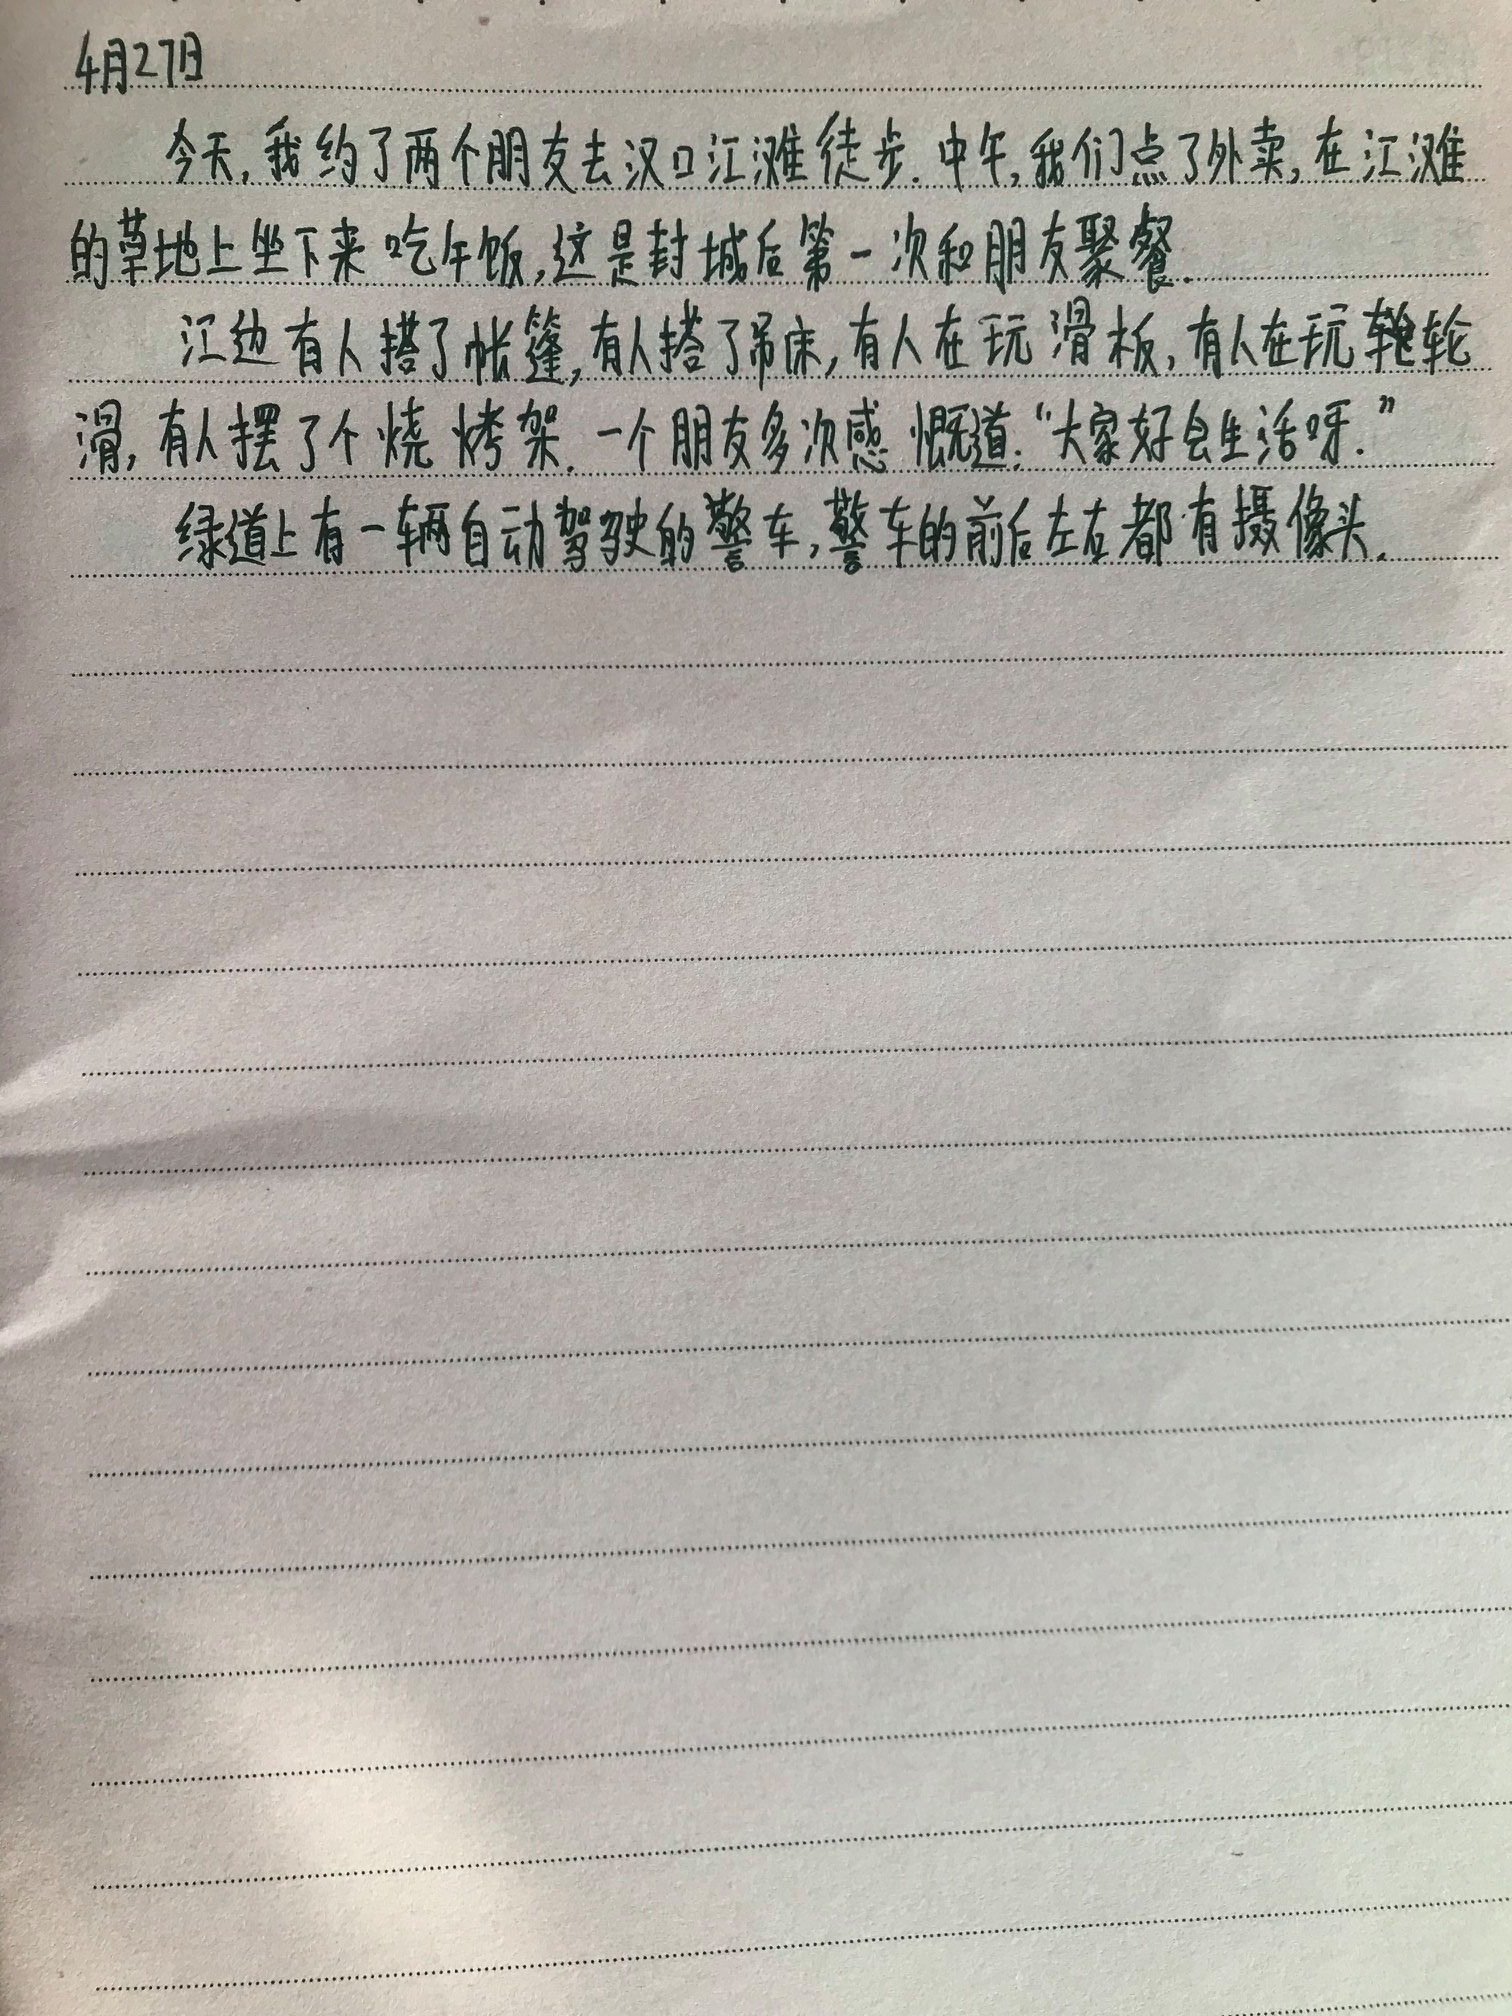 4月27日
今天,我约了两个朋友去汉口江滩徒步.中午,我们点了外卖,在江滩
的草地上坐下来吃午饭,这是封城后第一次和朋友聚餐.
江边有人搭了帐篷,有人搭了吊床,有人在玩滑板,有人在玩轮
滑,有人摆了个烧烤架.一个朋友多次感慨道:“大家好会生活呀.”
绿道上有一辆自动驾驶的警车,警车的前后左右都有摄像头.